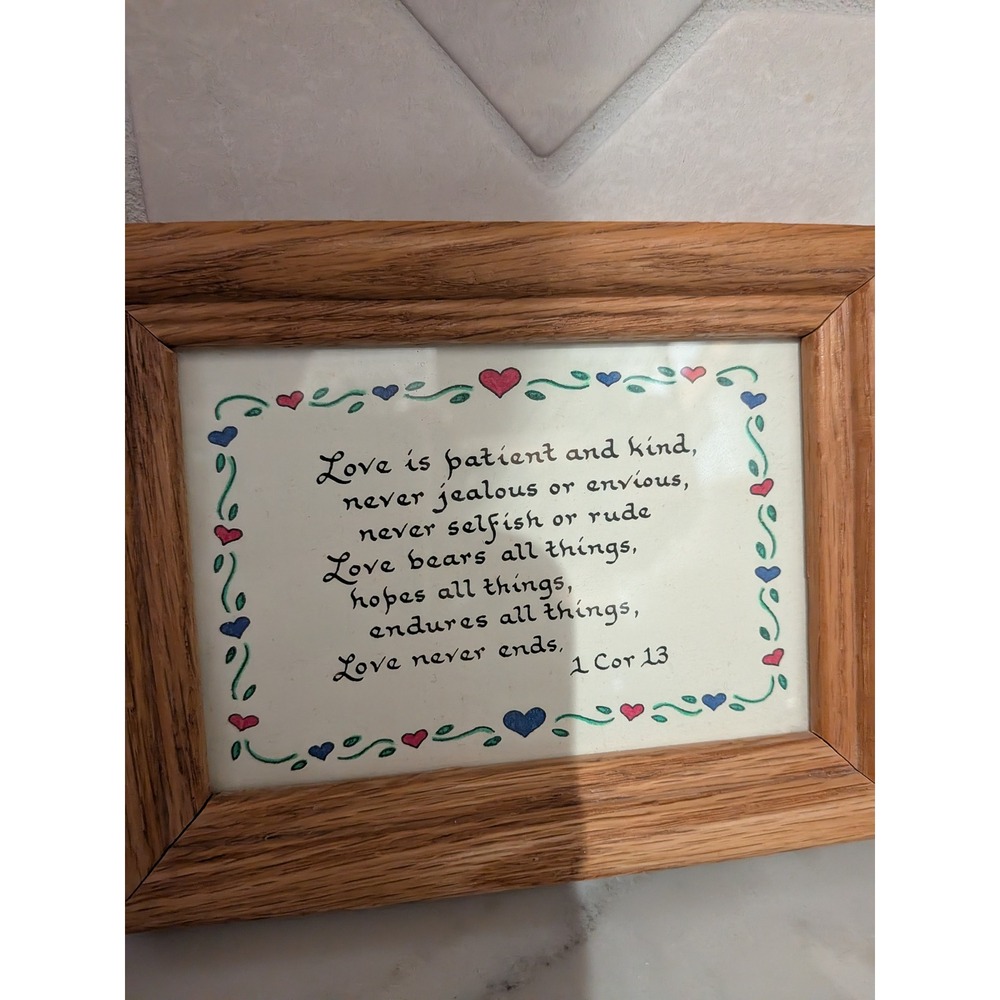 Love is patient and kind,
never jealous or envious,
never selfish or rude
Love bears all things,
hopes all things,
endures all things,
Love never ends.
1 Cor 13